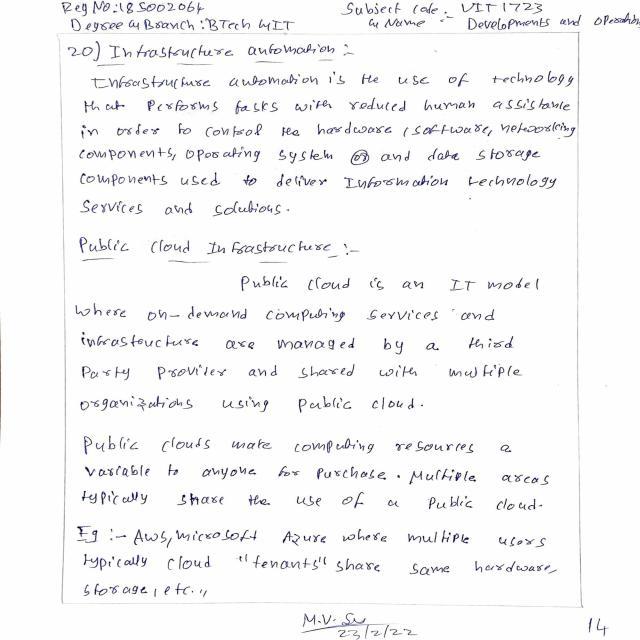 Reg No:18S002064 Subject code :- VIT1723
Degree & Branch :BTech & IT & Name :- Developments and operation
20) Infrastructure automation :-
Infrastructure automation is the use of technology
that performs tasks with reduced human assistance
in order to control the hardware, software, networking
components, operating system (or) and data storage
components used to deliver Information technology
services and solutions.
Public cloud Infrastructure :-
Public cloud is an IT model
where on-demand computing services and
infrastructure are managed by a third
party provider and shared with multiple
organizations using public cloud.
Public clouds make computing resources a
variable to anyone for purchase. Multiple areas
typically share the use of a public cloud.
Eg :- Aws, microsoft Azure where multiple users
typically cloud "tenants" share same hardware,
storage, etc.,,
M.V. 
23/2/22
14